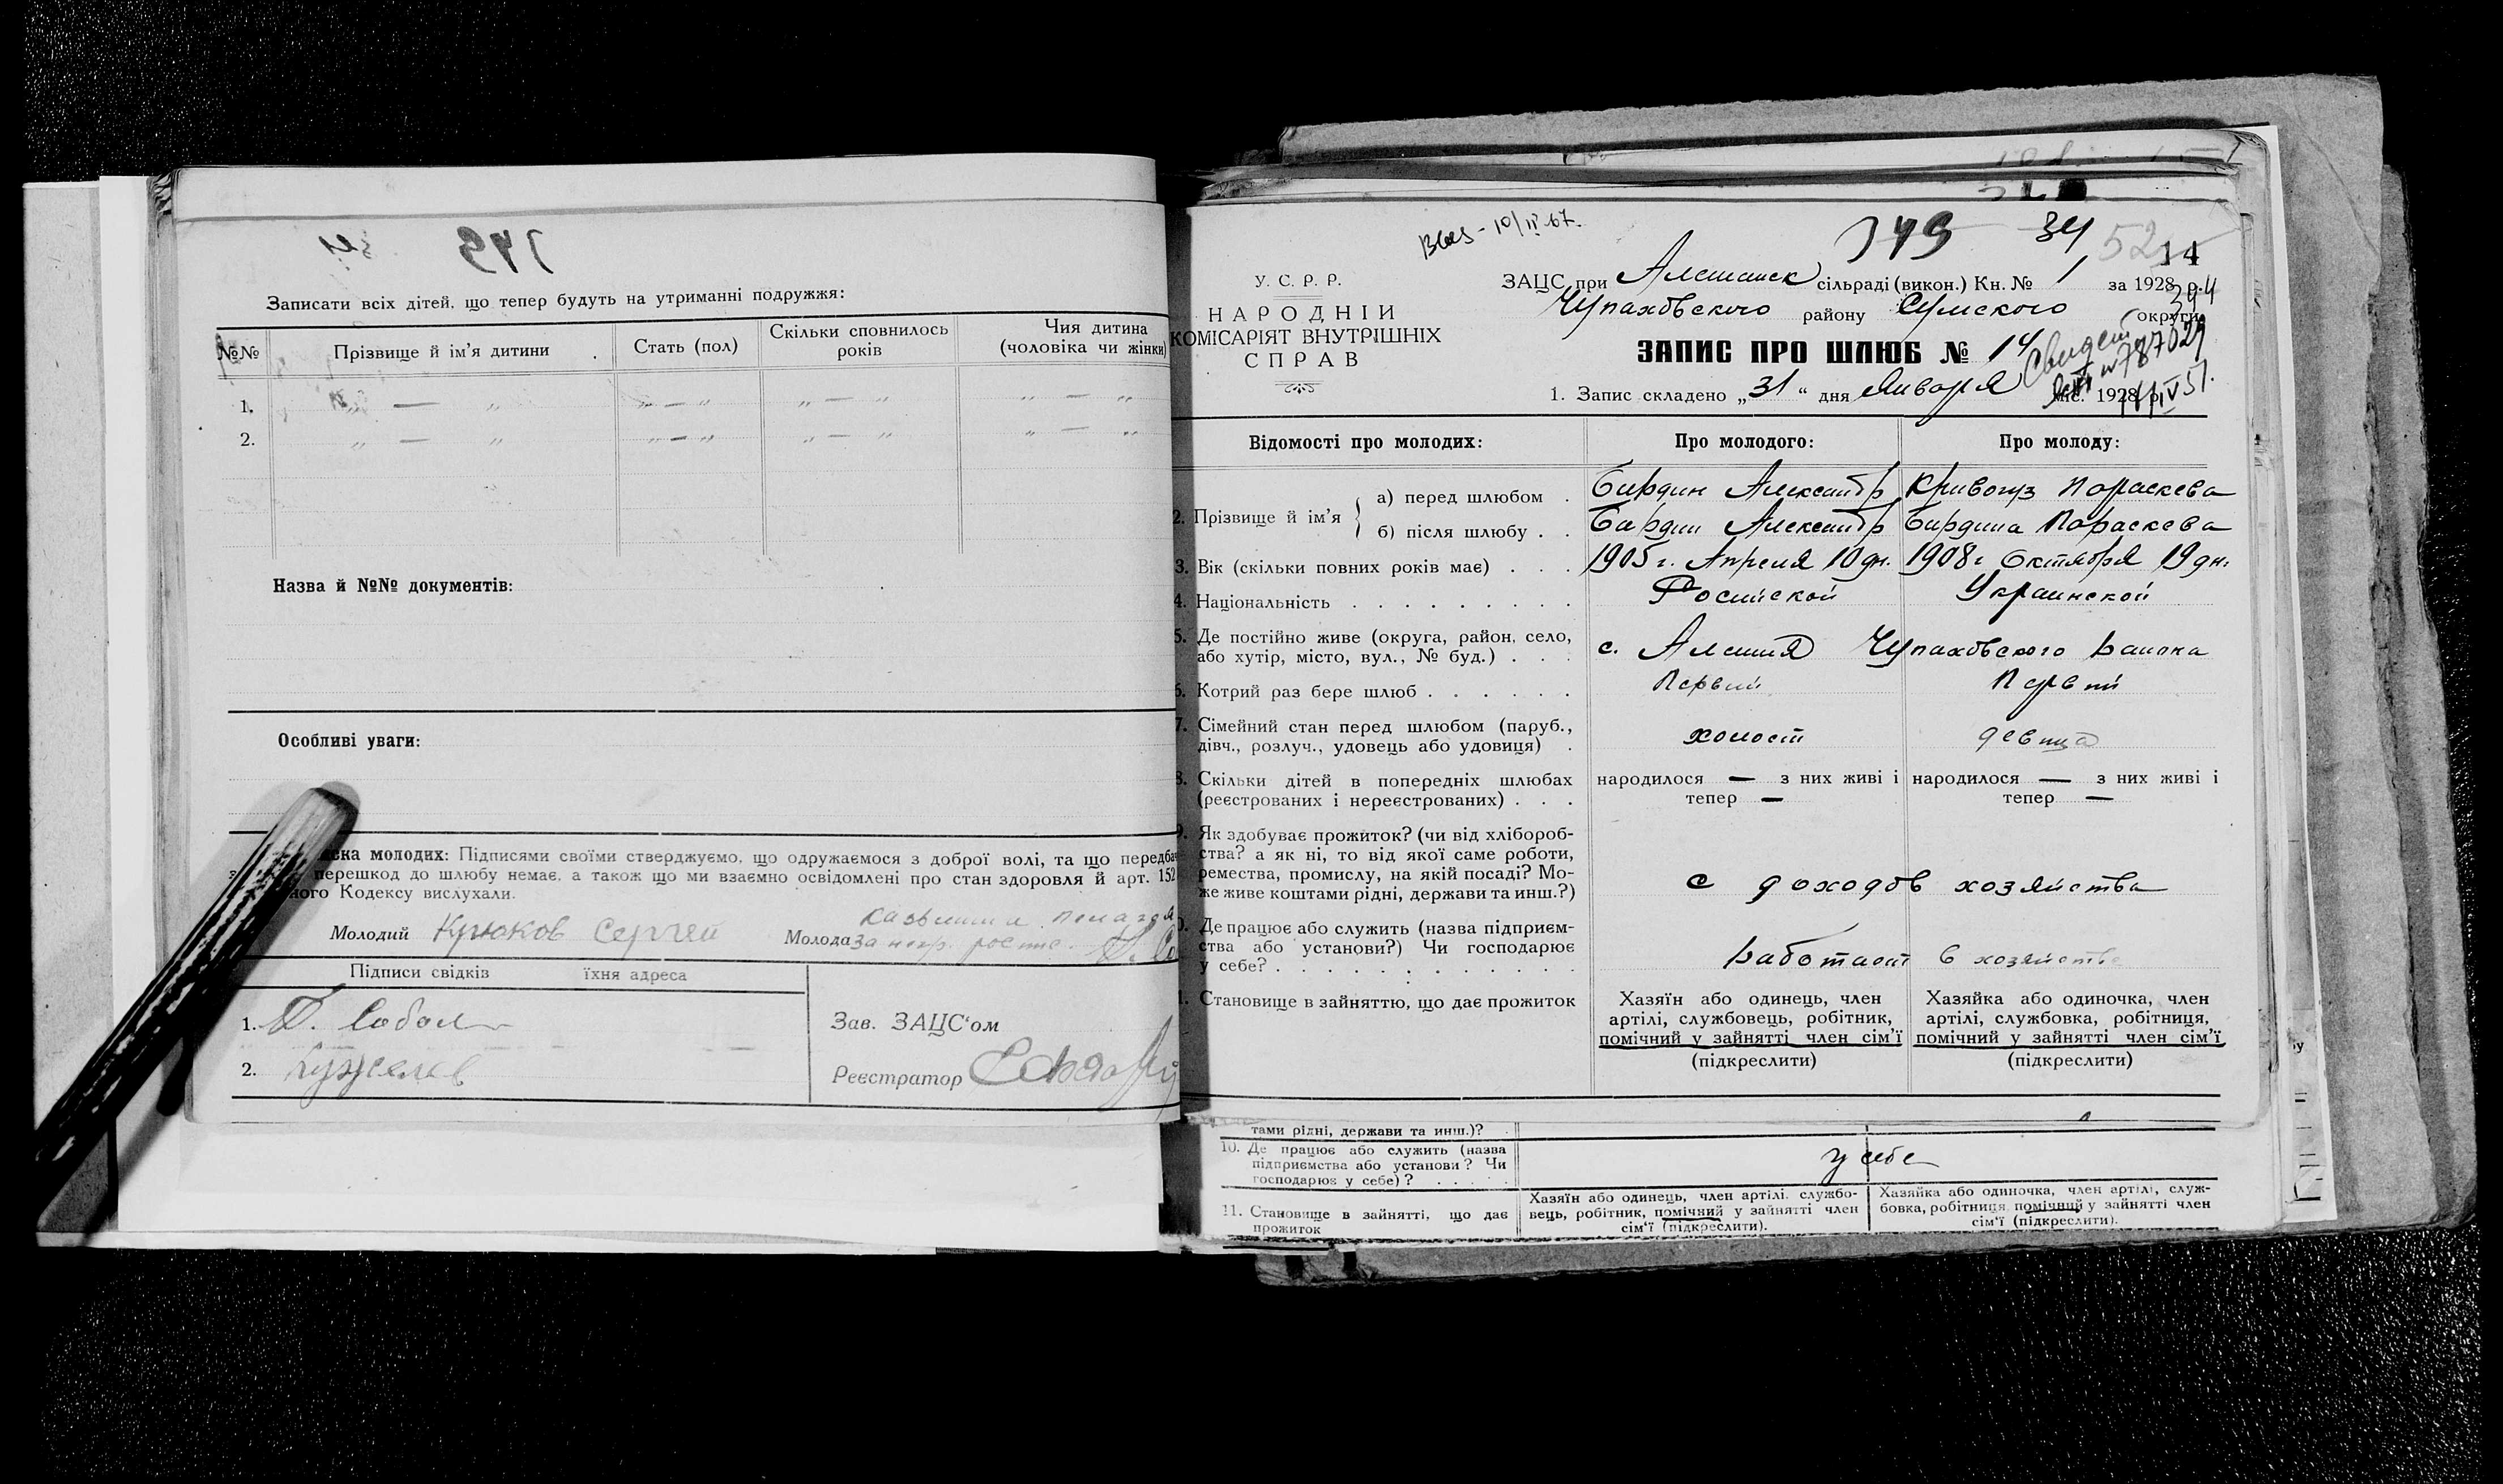 Записати всіх дітей, що тепер будуть на утриманні подружжя:
№№ Прізвище й ім'я дитини Стать (пол) Скільки сповнилось років Чия дитина (чоловіка чи жінки)
1. „ — „ „ — „ „ — „ „ — „
2. „ — „ „ — „ „ — „ „ — „
Назва й №№ документів:
Особливі уваги:
ска молодих: Підписями своїми стверджуємо, що одружаємося з доброї волі, та що передба
перешкод до шлюбу немає, а також що ми взаємно освідомлені про стан здоровля й арт. 152
ного Кодексу вислухали.
Молодий Крюков Сергей Молода за негр.
Підписи свідків їхня адреса
1. Соболь
2.
Зав. ЗАЦС'ом
Реєстратор
10/II 67.
349 34 52 14
У. С. Р. Р.
НАРОДНІЙ
КОМІСАРІЯТ ВНУТРІШНІХ
СПРАВ
ЗАЦС при Алешанск сільраді (викон.) Кн. № 1 за 1928 р.
Чупаховского району Сумского округи
ЗАПИС ПРО ШЛЮБ № 14
Свидет
787029
1. Запис складено „31" дня Января міс. 1928 р.
Відомості про молодих: Про молодого: Про молоду:
2. Прізвище й ім'я
а) перед шлюбом . Бирдин Александр Кривогуз Параскева
б) після шлюбу . . Бирдин Александр Бирдина Параскева
3. Вік (скільки повних років має) . . . 1905 г. Апреля 10 дн. 1908 г Октября 19 дн.
4. Національність . . . . . . . . . Росийской Украинской
5. Де постійно живе (округа, район, село,
або хутір, місто, вул., № буд.) . . . с. Алешня Чупаховского Района
6. Котрий раз бере шлюб . . . . . . Первий Первий
7. Сімейний стан перед шлюбом (паруб.,
дівч., розлуч., удовець або удовиця) . холост девица
8. Скільки дітей в попередніх шлюбах народилося — з них живі і народилося — з них живі і
(реєстрованих і нереєстрованих) . . . тепер — тепер —
9. Як здобуває прожиток? (чи від хлібороб-
ства? а як ні, то від якої саме роботи,
ремества, промислу, на якій посаді? Мо-
же живе коштами рідні, держави та инш.?) с доходов хозяйства
10. Де працює або служить (назва підприєм-
ства або установи?) Чи господарює
у себе? . . . . . . . . . . . . Работает в хозяйстве
11. Становище в зайняттю, що дає прожиток
Хазяїн або одинець, член артілі, службовець, робітник, помічний у зайнятті член сім'ї (підкреслити)
Хазяйка або одиночка, член артілі, службовка, робітниця, помічний у зайнятті член сім'ї (підкреслити)
тами рідні, держави та инш.)?
10. Де працює або служить (назва
підприємства або установи? Чи
господарює у себе)? . . . . . у себе
11. Становище в зайнятті, що дає
прожиток
Хазяїн або одинець, член артілі, службо-
вець, робітник, помічний у зайнятті член
сім'ї (підкреслити).
Хазяйка або одиночка, член артілі, служ-
бовка, робітниця, помічний у зайнятті член
сім'ї (підкреслити).